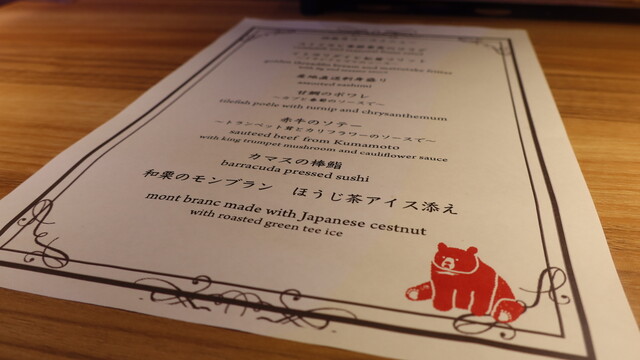 産地直送刺身盛り
assorted sashimi
甘鯛のポワレ
～カブと春菊のソースで～
tilefish poêle with turnip and chrysanthemum
赤牛のソテー
～トランペット茸とカリフラワーのソースで～
sauteed beef from Kumamoto
with king trumpet mushroom and cauliflower sauce
カマスの棒鮨
barracuda pressed sushi
和栗のモンブラン　ほうじ茶アイス添え
mont branc made with Japanese cestnut
with roasted green tee ice